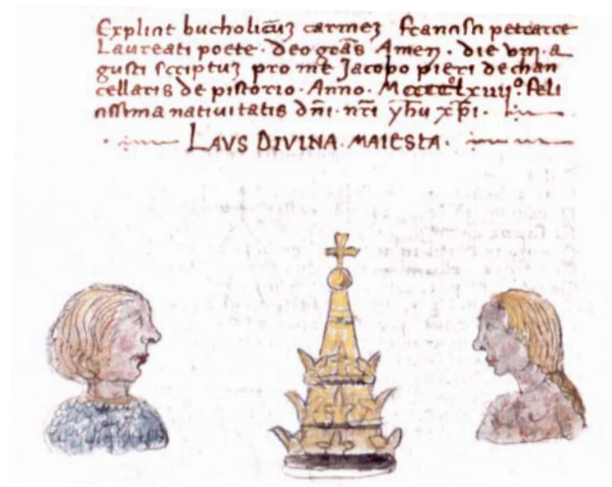 Explicit bucholicuʒ carmeʒ francisci petrarce
Laureati poete · deo gr̃as Amen · die viii · a
gusti scriptuʒ pro me Jacopo pieri de chan
cellaris de pistorio · Anno · Mccccºlxiiiiº · feli
cissima nativitatis dñi · nr̃i yhu xp̃i ·
LAVS DIVINA · MAIESTA ·